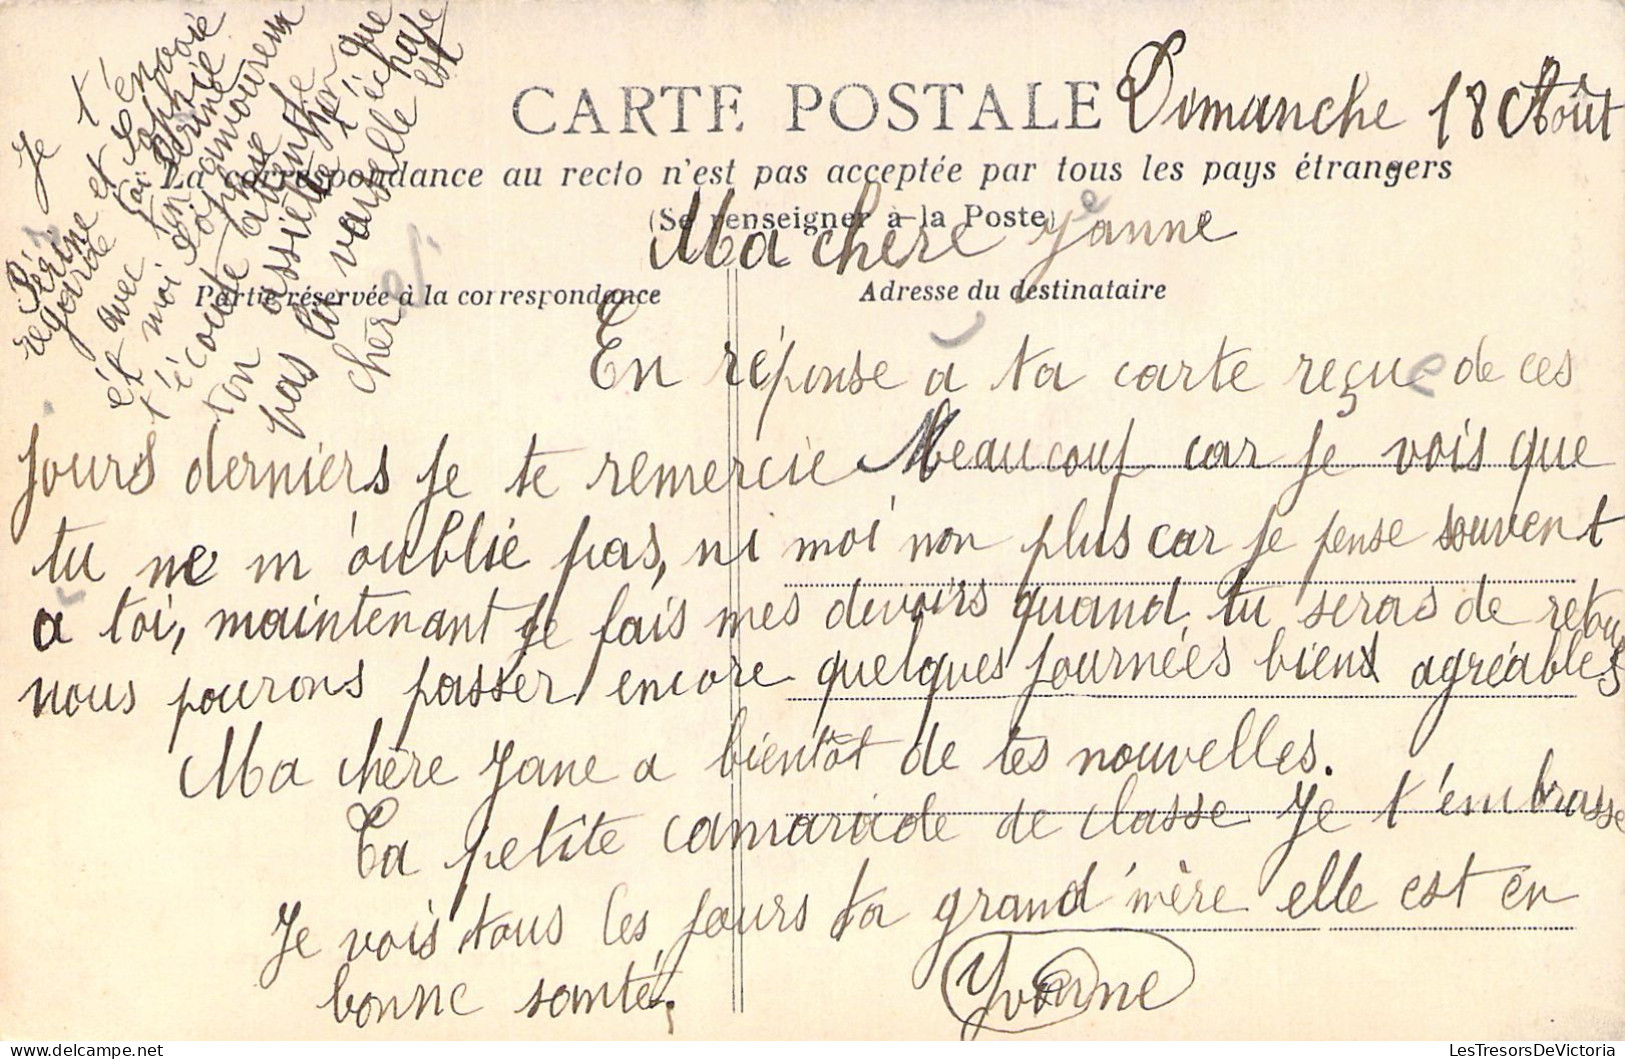 CARTE POSTALE
Dimanche 18 Août
La correspondance au recto n'est pas acceptée par tous les pays étrangers
(Se renseigner à la Poste)
Ma chère Jeanne
Partie réservée à la correspondance
Adresse du destinataire
En réponse à ta carte reçu de ces
jours derniers je te remercie Beaucoup car je vois que
tu ne m'oublie pas, ni moi non plus car je pense souvent
à toi, maintenant je fais mes devoirs quand tu seras de retour
nous pourons passer encore quelques journées biens agréables
Ma chère Jane a bientôt de tes nouvelles.
Ta petite camarade de classe Je t'embrasse
Je vois tous les jours ta grand'mère elle est en
bonne santé.
Yvonne
Je t
regarde
et avec toi
et moi
t'écoute
ton assiette
pas la vaisselle est
cher
LesTresorsDeVictoria